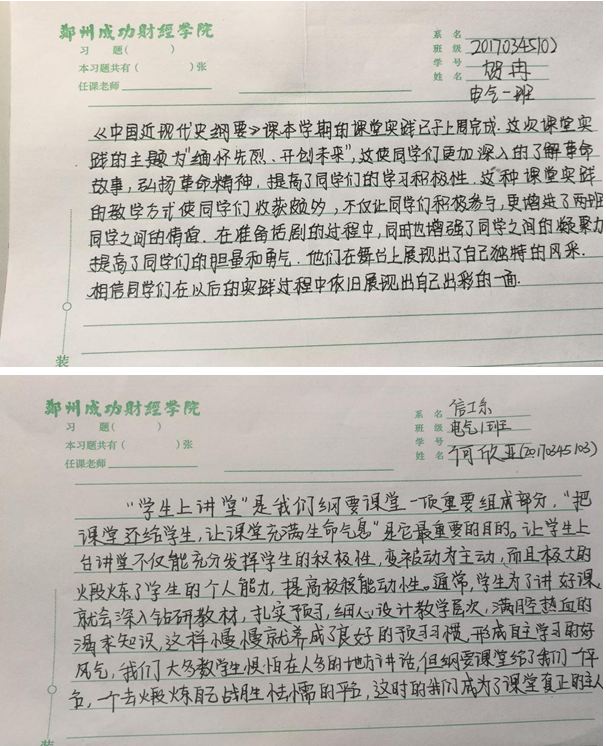 郑州成功财经学院
习 题( )
本习题共有( )张
任课老师
系 名
班 级 20170345102
学 号
姓 名 贺冉
电气一班
《中国近现代史纲要》课本学期的课堂实践已于上周完成.这次课堂实
践的主题为"缅怀先烈、开创未来",这使同学们更加深入的了解革命
故事,弘扬革命精神,提高了同学们的学习积极性.这种课堂实践
的教学方式使同学们收获颇多,不仅让同学们积极参与,更增进了两班
同学之间的情谊.在准备话剧的过程中,同时也增强了同学之间的凝聚力
提高了同学们的胆量和勇气.他们在舞台上展现出了自己独特的风采.
相信同学们在以后的实践过程中依旧展现出自己出彩的一面.
装
郑州成功财经学院
习 题( )
本习题共有( )张
任课老师
系 名 信工系
班 级 电气1班
学 号
姓 名 何欣亚(20170345103)
"学生上讲堂"是我们纲要课堂一项重要组成部分,"把
课堂还给学生,让课堂充满生命气息"是它最重要的目的。让学生上
台讲堂不仅能充分发挥学生的积极性,变被动为主动,而且极大的
火锻炼了学生的个人能力,提高极极能动性。通常,学生为了讲好课,
就会深入钻研教材,扎实预习,细心设计教学层次,满腔热血的
渴求知识,这样慢慢就养成了良好的预习习惯,形成自主学习的好
风气,我们大多数学生惧怕在人多的地方讲话,但纲要课堂给了我们一个平
台,一个去锻炼自己战胜怯懦的平台,这时的我们成为了课堂真正的主人
装